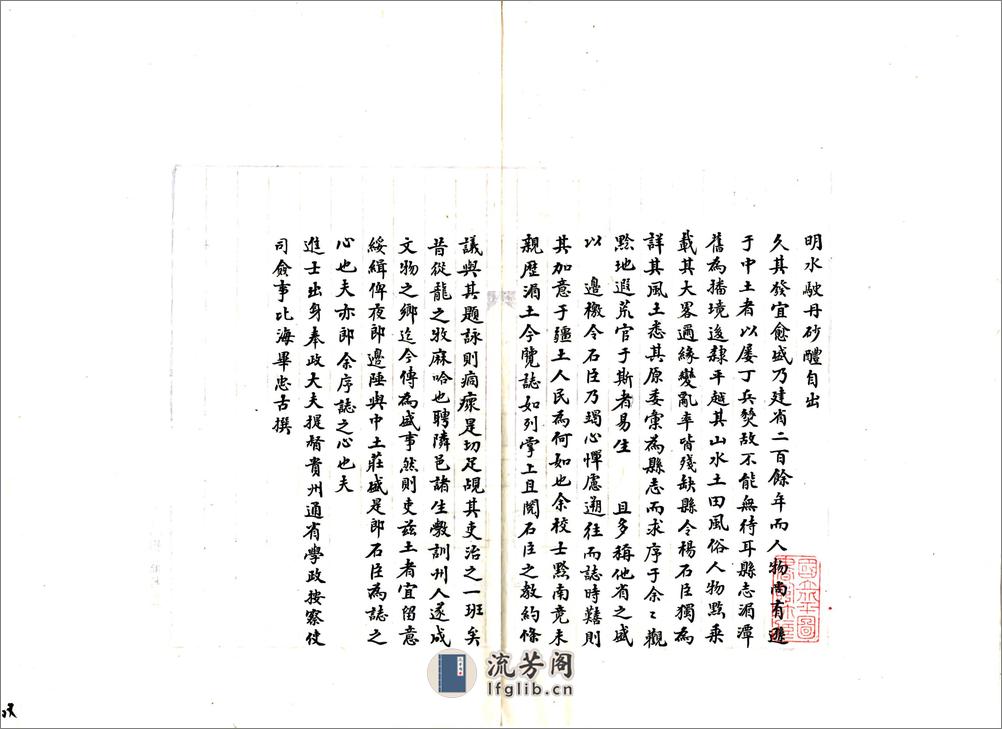 明水駛丹砂醴自出
久其發宜愈盛乃建省二百餘年而人物尚有遜
于中土者以屢丁兵燹故不能無待耳縣志湄潭
舊為播境後隸平越其山水土田風俗人物黔乘
載其大畧過緣變亂率皆殘缺縣令楊石臣獨為
詳其風土悉其原委彙為縣志而求序于余〻觀
黔地遐荒官于斯者易生 且多稱他省之盛
以 邊檄令石臣乃竭心憚慮遡往而誌時囏則
其加意于疆土人民為何如也余校士黔南竟未
親歷湄土今覽誌如列掌上且閱石臣之教約條
議與其題詠則痌瘝是切足覘其吏治之一班矣
昔從龍之牧麻哈也聘隣邑諸生敎訓州人遂成
文物之鄉迄今傳為盛事然則吏茲土者宜留意
綏緝俾夜郎邊陲與中土莊盛是郎石臣為誌之
心也夫亦郎余序誌之心也夫
進士出身奉政大夫提督貴州通省學政按察使
司僉事北海畢忠吉撰
流芳阁
lfglib.cn